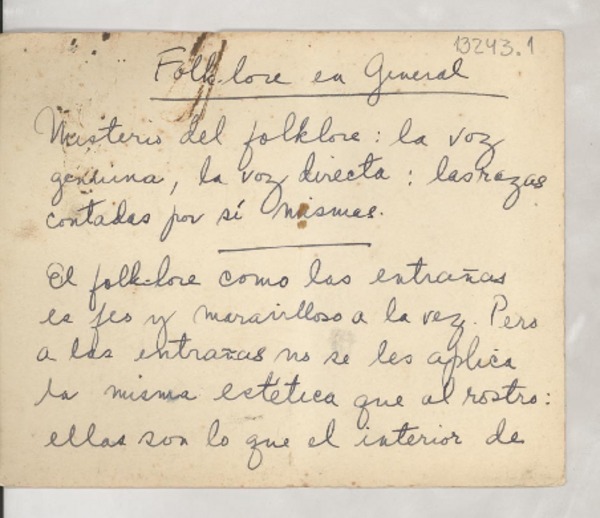 13243.1
Folk-lore en General
Misterio del folklore: la voz
genuina, la voz directa: las razas
contadas por sí mismas.
El folk-lore como las entrañas
es feo y maravilloso a la vez. Pero
a las entrañas no se les aplica
la misma estética que al rostro:
ellas son lo que el interior de